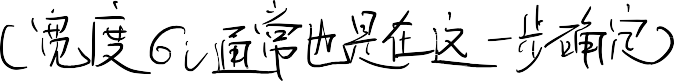 (宽度σi通常也是在这一步确定)